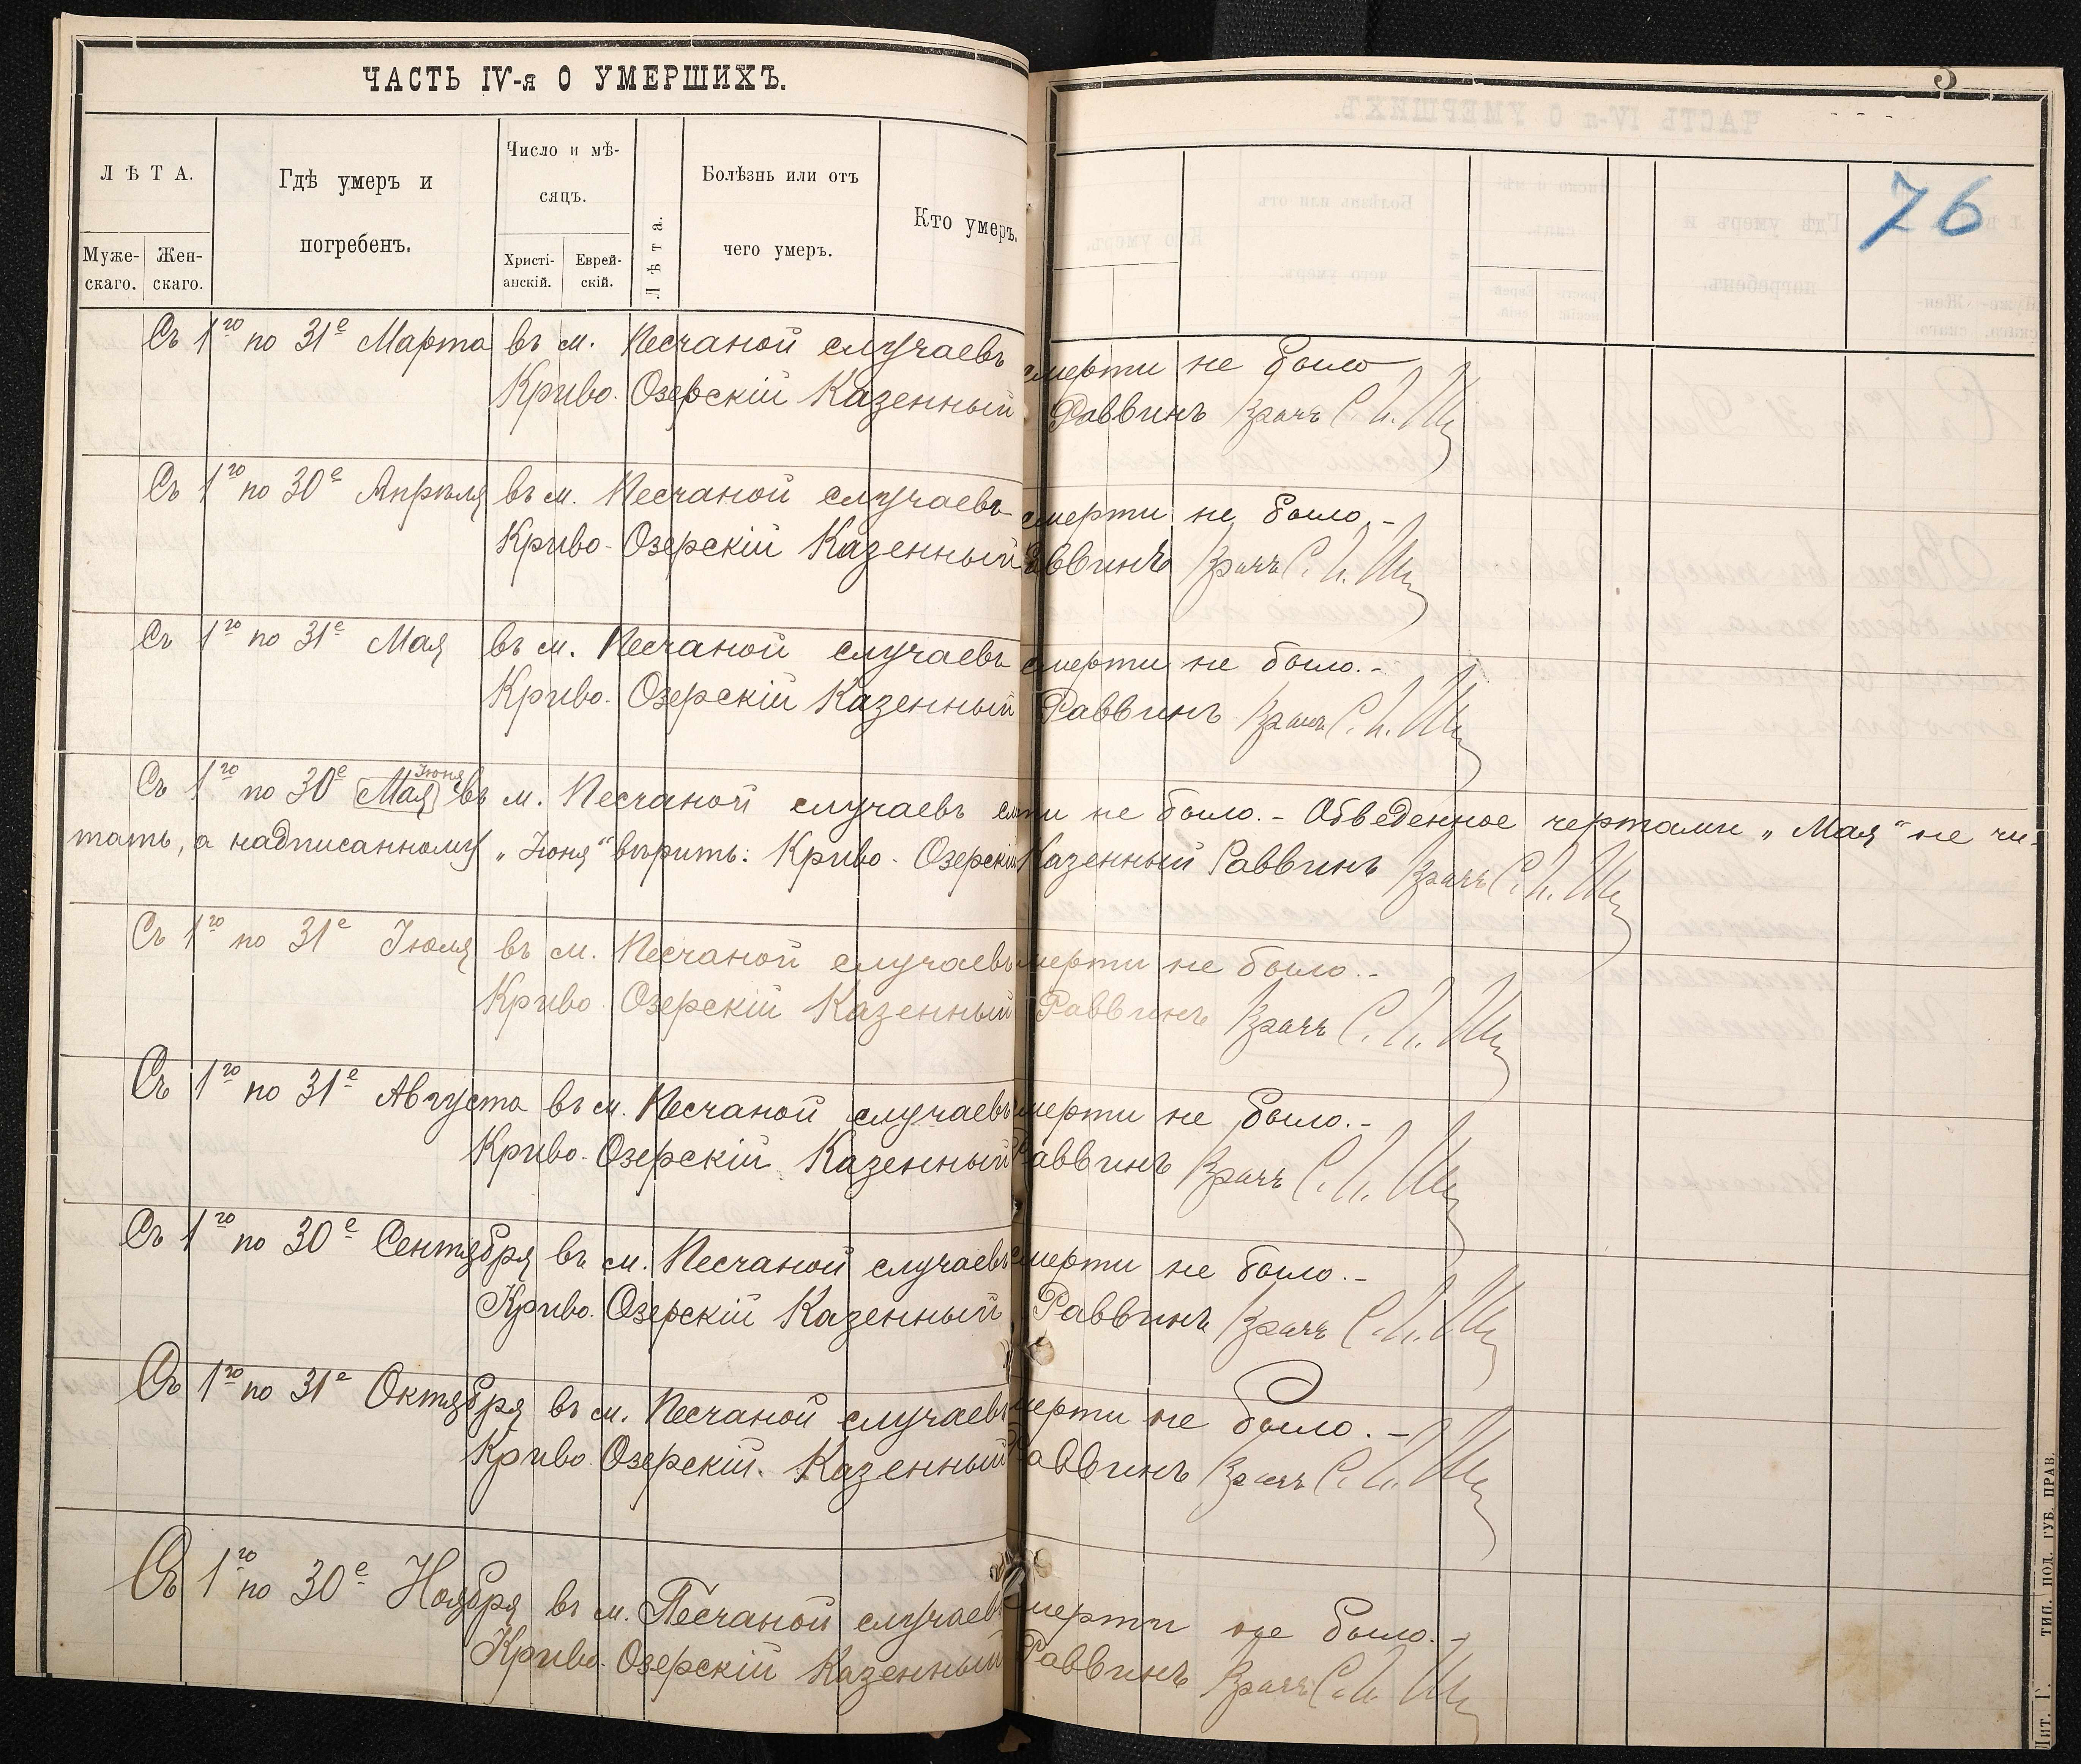 ЧАСТЬ IV-я О УМЕРШИХЪ.
76
ЛѢТА.
Муже-
скаго.
Жен-
скаго.
Гдѣ умеръ и
погребенъ.
Число и мѣ-
сяцъ.
Христі-
анскій.
Еврей-
скій.
Лѣта.
Болѣзнь или отъ
чего умеръ.
Кто умеръ.
Съ 1го по 31е Марта въ м. Песчаной случаевъ смерти не было
Криво-Озерскій Казенный Раввинъ Врачъ
Съ 1го по 30е Апрѣля въ м. Песчаной случаевъ смерти не было.-
Криво-Озерскій Казенный Раввинъ Врачъ
Съ 1го по 31е Мая въ м. Песчаной случаевъ смерти не было.-
Криво-Озерскій Казенный Раввинъ Врачъ
Июня
Съ 1го по 30е Мая въ м. Песчаной случаевъ смерти не было.- Обведенное чертами „Мая“ не чи-
тать, а надписанному „Июня“ вѣрить: Криво-Озерскій Казенный Раввинъ Врачъ
Съ 1го по 31е Июля въ м. Песчаной случаевъ смерти не было.-
Криво-Озерскій Казенный Раввинъ Врачъ
Съ 1го по 31е Августа въ м. Песчаной случаевъ смерти не было.-
Криво-Озерскій Казенный Раввинъ Врачъ
Съ 1го по 30е Сентября въ м. Песчаной случаевъ смерти не было.-
Криво-Озерскій Казенный Раввинъ Врачъ
Съ 1го по 31е Октября въ м. Песчаной случаевъ смерти не было.-
Криво-Озерскій Казенный Раввинъ Врачъ
Съ 1го по 30е Ноября въ м. Песчаной случаевъ смерти не было.-
Криво-Озерскій Казенный Раввинъ Врачъ
Лит. Г. ТИП. ПОД. ГУБ. ПРАВ.